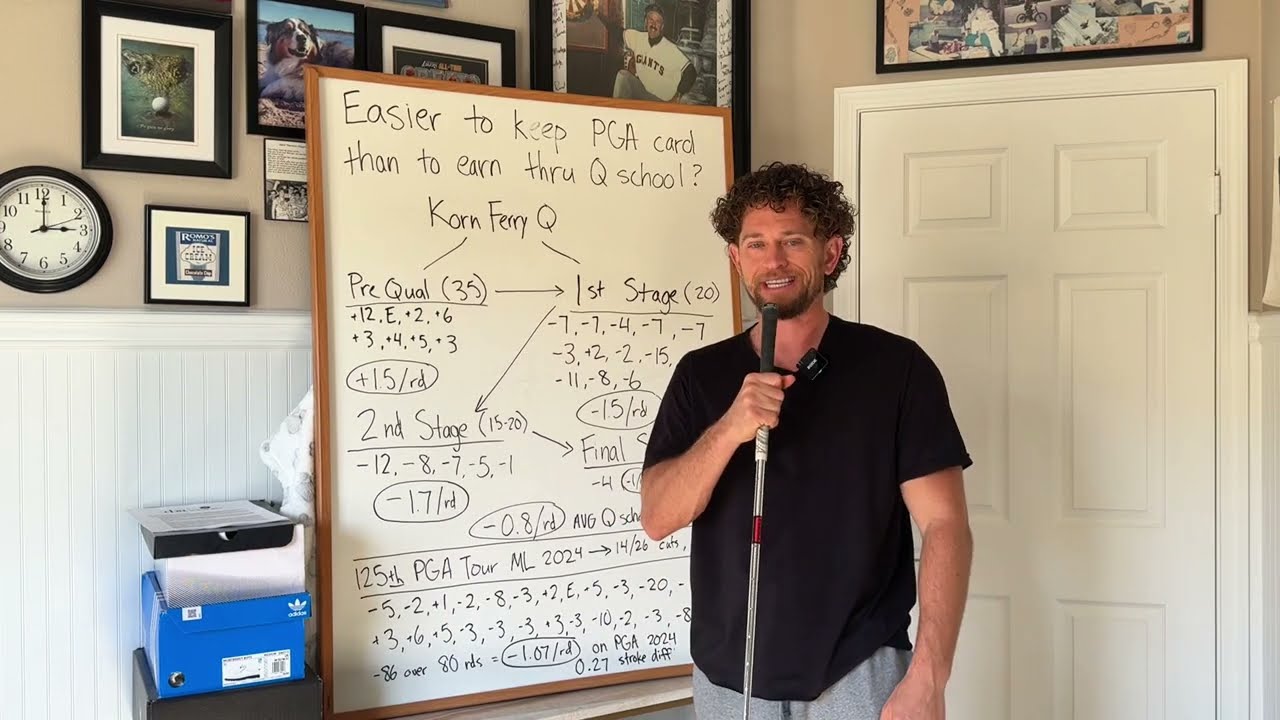 Easier to keep PGA card
than to earn thru Q school?
Korn Ferry Q
Pre Qual (35)
+12, E, +2, +6
+3, +4, +5, +3
+1.5/rd
1st Stage (20)
-7, -7, -4, -7, -7
-3, +2, -2, -15,
-11, -8, -6
-1.5/rd
2nd Stage (15-20)
-12, -8, -7, -5, -1
-1.7/rd
Final
-4
-0.8/rd AVG Q
125th PGA Tour ML 2024 → 14/26 cuts,
-5, -2, +1, -2, -8, -3, +2, E, +5, -3, -20, -
+3, +6, +5, -3, -3, -3, +3, -3, -10, -2, -3, -8
-86 over 80 rds = -1.07/rd on PGA 2024
0.27 stroke diff
GIANTS
ROMO'S
ICE
CREAM
Chocolate Chip
12
1
2
3
4
5
6
7
8
9
10
11
adidas